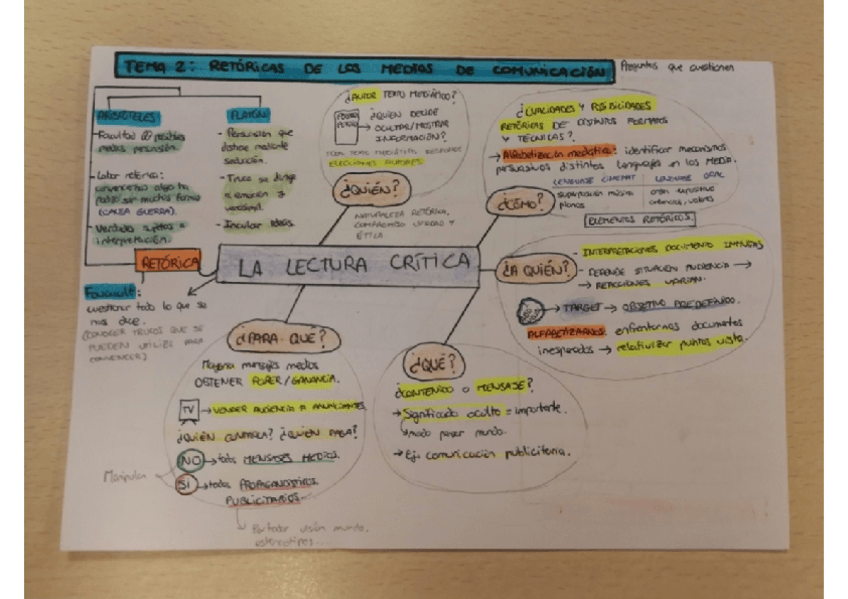 TEMA 2: RETÓRICAS DE LOS MEDIOS DE COMUNICACIÓN
Preguntas que cuestionen
ARISTÓTELES
- Facultad
posibles
medios persuasión.
- Labor retórica:
convencernos algo ha
podido ser de mucha forma
(CAUSA GUERRA).
- Verdad sujetas a
interpretación.
PLATÓN
- Persuasión que
obtiene mediante
seducción.
- Truco se dirige
a emoción y
verosímil.
- Inculcar ideas.
RETÓRICA
Foucault:
cuestionar todo lo que se
nos dice.
(CONOCER TRUCOS QUE SE
PUEDEN UTILIZAR PARA
CONVENCER)
LA LECTURA CRÍTICA
¿QUIÉN?
¿AUTOR TEXTO MEDIÁTICO?
¿QUIÉN DECIDE
OCULTAR/MOSTRAR
INFORMACIÓN?
ELECCIONES AUTORES
NATURALEZA RETÓRICA,
COMPROMISO VERDAD Y
ÉTICA.
¿CÓMO?
¿CUALIDADES Y POSIBILIDADES
RETÓRICAS DE DISTINTOS FORMATOS
Y TÉCNICAS?
→ Alfabetización mediática: identificar mecanismos
persuasivos distintos lenguajes en los MEDIA.
LENGUAJE CINEMAT
superposición música
planos
LENGUAJE ORAL
ELEMENTOS RETÓRICOS.
¿A QUIÉN?
- INTERPRETACIONES DOCUMENTO INFINITAS
- DEPENDE SITUACIÓN AUDIENCIA →
→ REACCIONES VARÍAN.
→ TARGET → OBJETIVO PREDEFINIDO.
ALFABETIZARNOS: enfrentarnos documentos
inesperados → relativizar puntos vista.
¿QUÉ?
¿CONTENIDO O MENSAJE?
→ Significado oculto = importante.
modo pensar mundo.
→ Ej: comunicación publicitaria.
¿PARA QUÉ?
Mayoría mensajes medios
OBTENER PODER/GANANCIA.
TV → VENDER AUDIENCIA A ANUNCIANTES
¿QUIÉN CONTROLA? ¿QUIÉN PAGA?
NO → todos MENSAJES MEDIOS.
Manipulan
SÍ → todos PROPAGANDÍSTICOS
PUBLICITARIOS.
Portador visión mundo,
estereotipos...